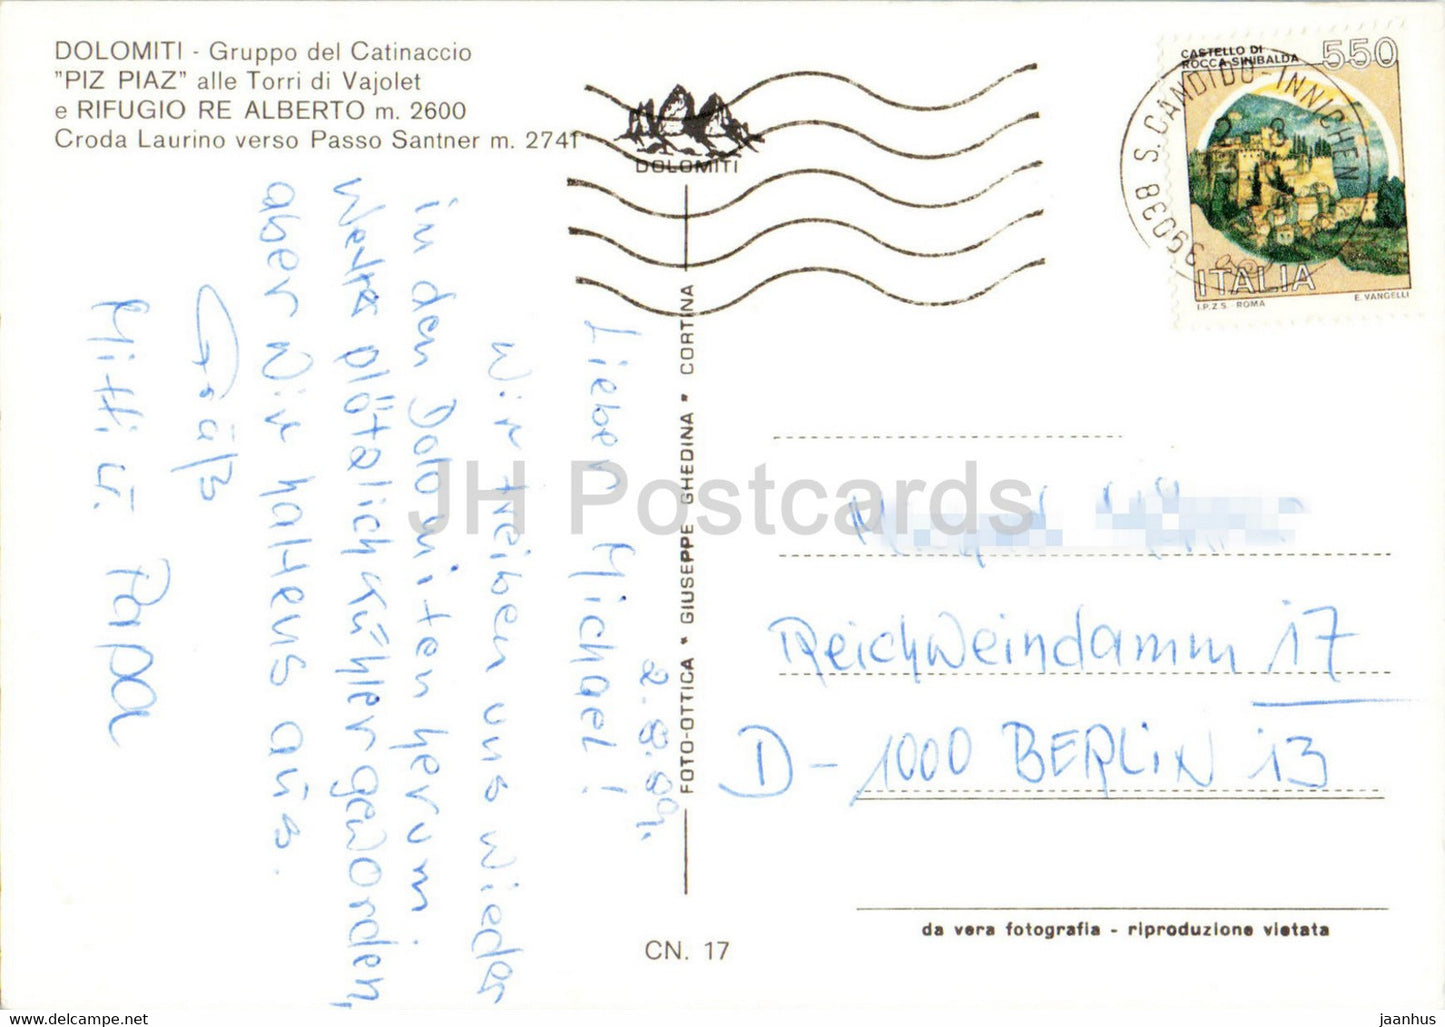 DOLOMITI - Gruppo del Catinaccio
"PIZ PIAZ" alle Torri di Vajolet
e RIFUGIO RE ALBERTO m. 2600
Croda Laurino verso Passo Santner m. 2741
DOLOMITI
CASTELLO DI
ROCCA SINIBALDA
550
ITALIA
I.P.Z.S. ROMA
E. VANGELLI
39038 S. CANDIDO - INNICHEN
2.8.89.
Lieber Michael!
Wir treiben uns wieder
in den Dolomiten herum
Wetter plötzlich kühler geworden,
aber wir halten's aus.
Gruß
Mitti u. Papa
FOTO-OTTICA * GIUSEPPE GHEDINA * CORTINA
Reichweindamm 17
D-1000 BERLIN 13
da vera fotografia - riproduzione vietata
CN. 17
JH Postcards
www.hippostcard.com
jaanhus